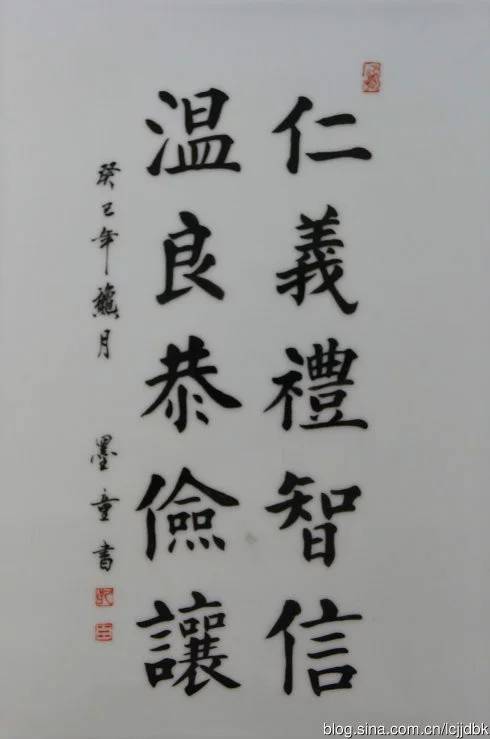 仁義禮智信
温良恭儉讓
癸巳年龝月 墨童書
blog.sina.com.cn/lcjjdbk